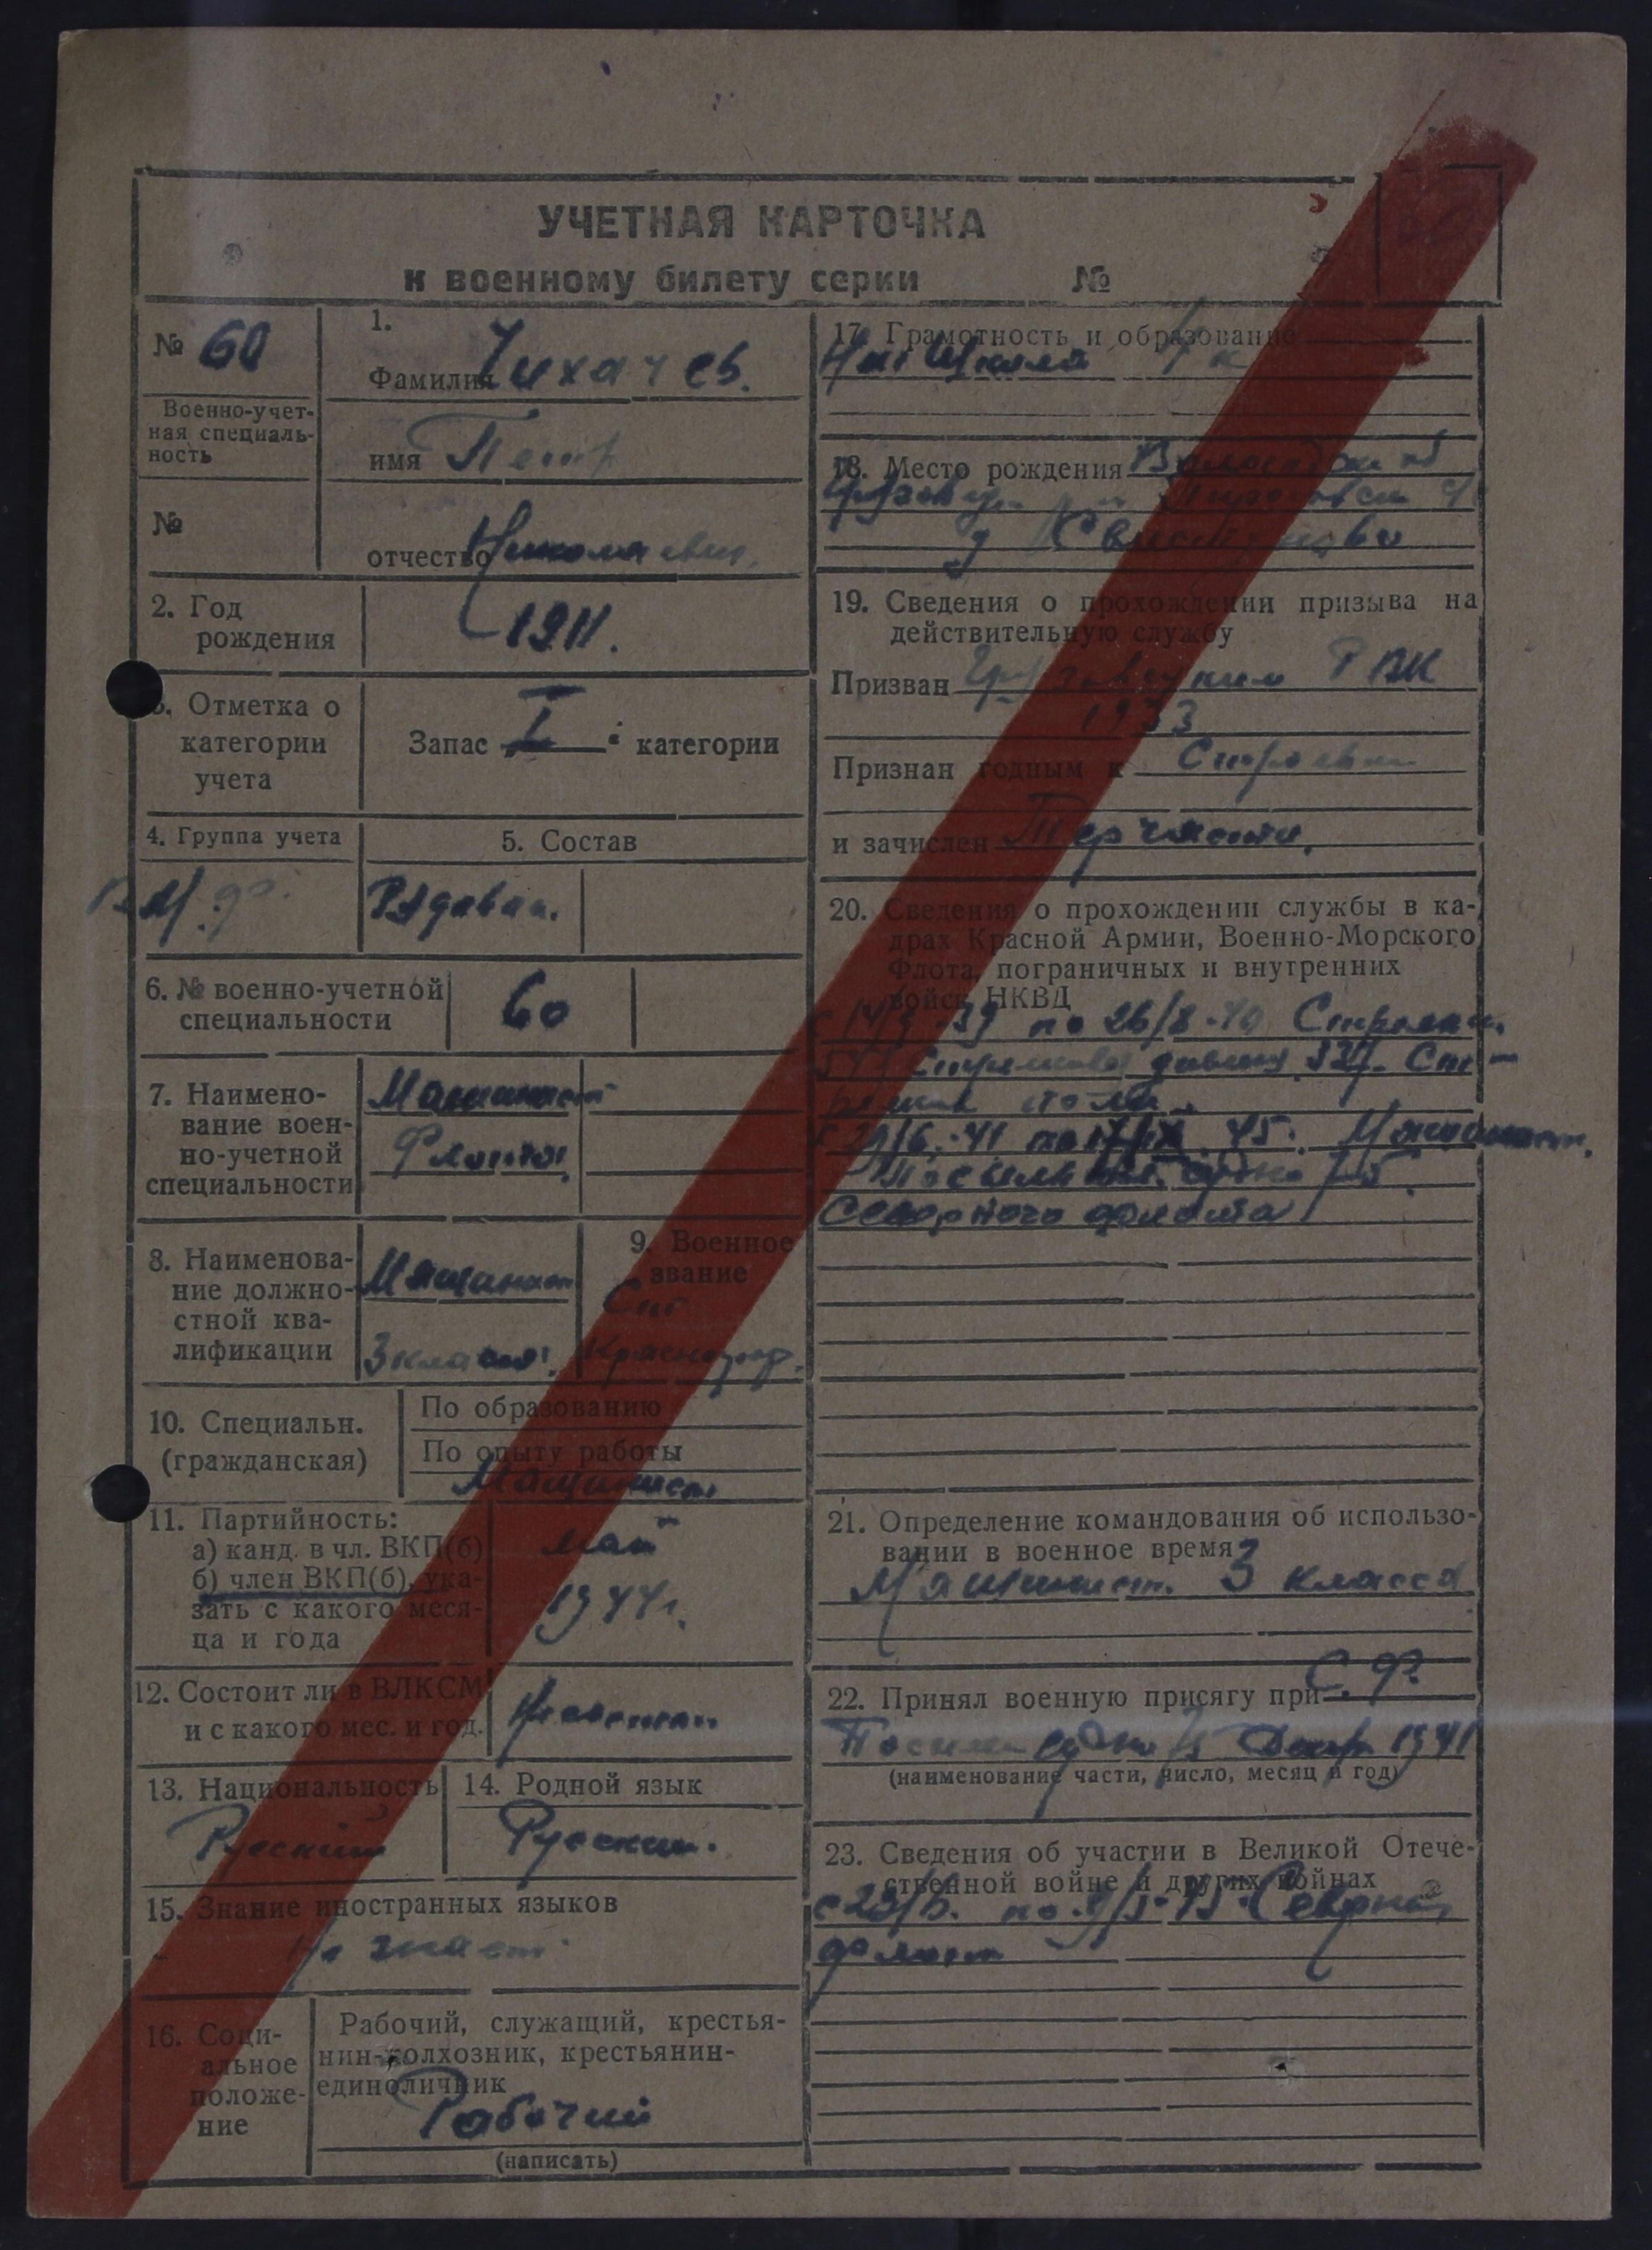 УЧЕТНАЯ КАРТОЧКА
к военному билету серки №
№ 60
Военно-учет-
ная специаль-
ность
№
1.
Фамилия Чихачев.
имя Петр
отчество Николаевич.
2. Год
рождения
1911.
3. Отметка о
категории
учета
Запас I категории
4. Группа учета
5. Состав
Рядовой.
6. № военно-учетной
специальности
60
7. Наимено-
вание воен-
но-учетной
специальности
Машинист
Флота
8. Наименова-
ние должно-
стной ква-
лификации
Машинист
3 класса.
9. Военное
звание
Ст.
Краснофл.
10. Специальн.
(гражданская)
По образованию
По опыту работы
Машинист
11. Партийность:
а) канд. в чл. ВКП(б)
б) член ВКП(б), ука-
зать с какого меся-
ца и года
май
1944г.
12. Состоит ли в ВЛКСМ
и с какого мес. и год.
Не состоит
13. Национальность
Русский
14. Родной язык
Русский.
15. Знание иностранных языков
Не знает
16. Соци-
альное
положе-
ние
Рабочий, служащий, крестья-
нин-колхозник, крестьянин-
единоличник
Рабочий
(написать)
17. Грамотность и образование
школа 4 к
18. Место рождения Вологодск об
д
19. Сведения о прохождении призыва на
действительную службу
Призван Грязовецким РВК
1933
Признан годным к Строевой
и зачислен Тер части.
20. Сведения о прохождении службы в ка-
драх Красной Армии, Военно-Морского
Флота, пограничных и внутренних
войск НКВД
по 26/8-40 Стрелок.
Стрелковая
полка
41 по 45. Машинист.
Посыльное судно
Северного флота
21. Определение командования об использо-
вании в военное время
Машинист. 3 класса
22. Принял военную присягу при С.Ф.
Посыльн судно 1941
(наименование части, число, месяц и год)
23. Сведения об участии в Великой Отече-
ственной войне и других войнах
по 9/5-45 Северный
флот